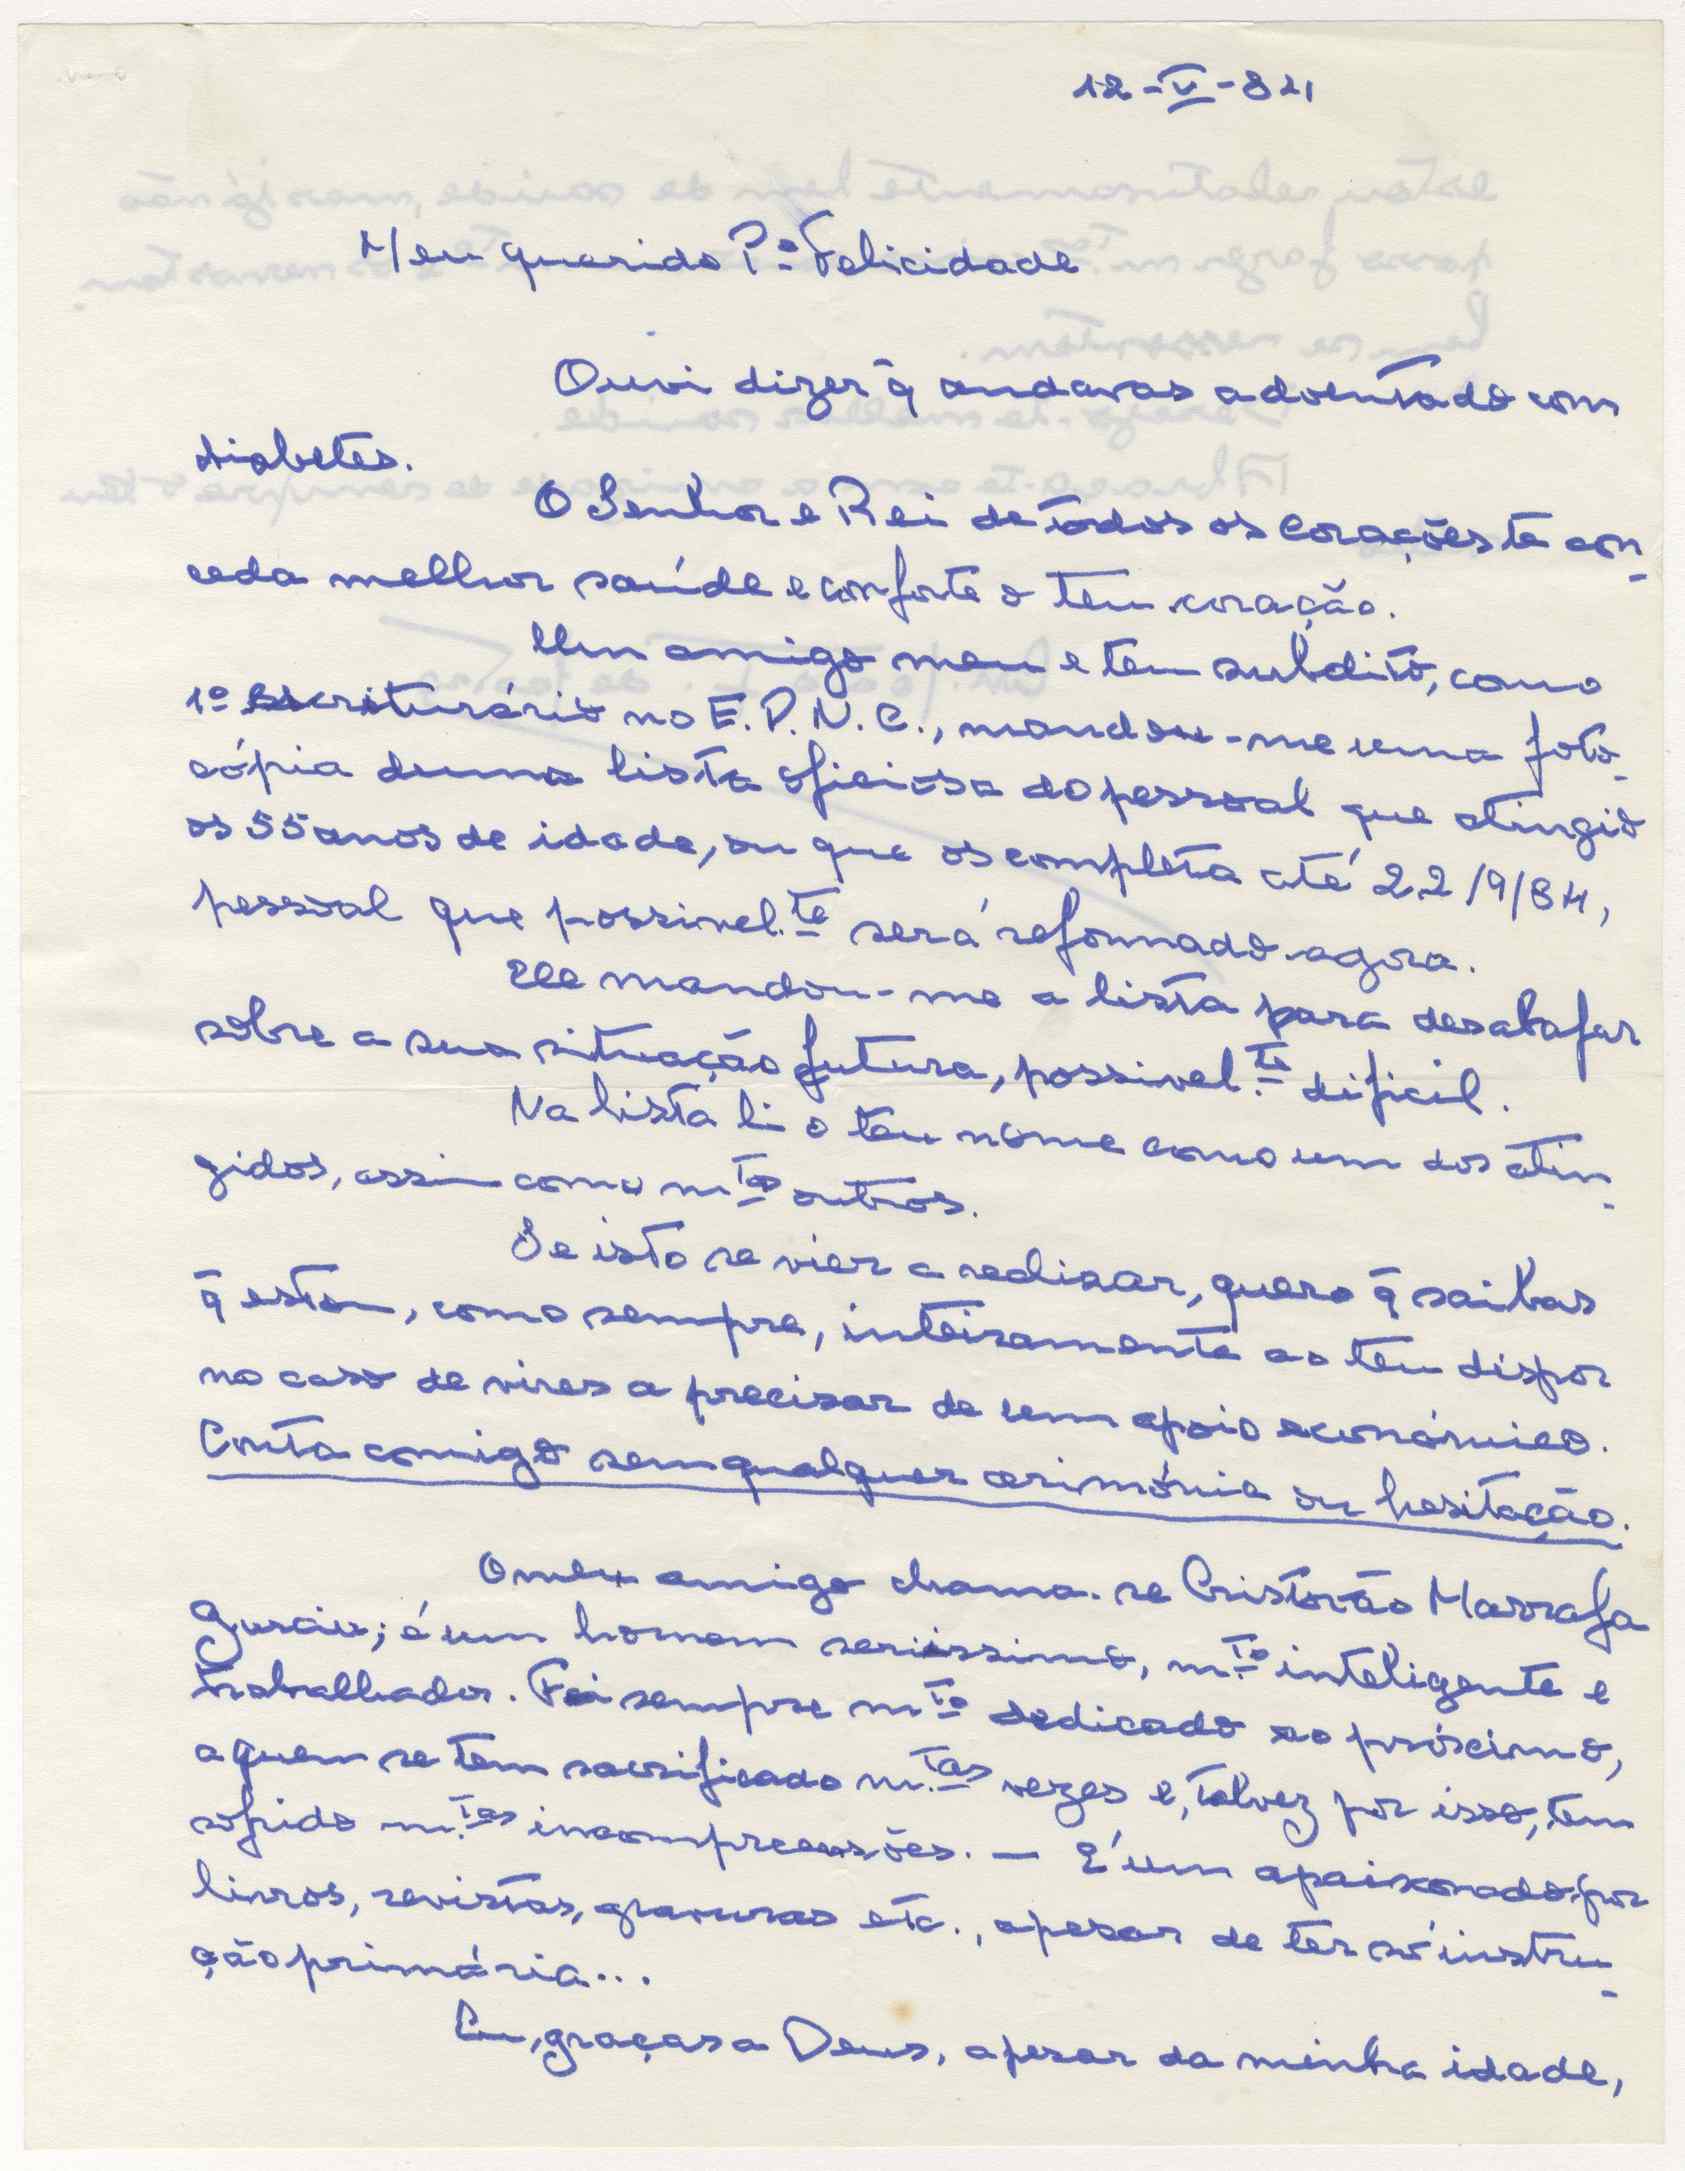 12-V-84
Meu querido P.e Felicidade
Ouvi dizer q̄ andavas adoentado com
diabetes.
O Senhor e Rei de todos os corações te con-
ceda melhor saúde e conforte o teu coração.
Um amigo meu e teu subdito, como
1º escriturário no E.P.N.C., mandou-me uma foto-
cópia duma lista oficiosa do pessoal que atingiu
os 55 anos de idade, ou que os completa até 22/9/84,
pessoal que possivel.te será reformado agora.
Ele mandou-me a lista para desabafar
sôbre a sua situação futura, possivel.te dificil.
Na lista li o teu nome como um dos atin-
gidos, assim como m.tos outros.
Se isto se vier a realizar, quero q̄ saibas
q̄ estou, como sempre, inteiramente ao teu dispor
no caso de vires a precisar de um apoio económico.
Conta comigo sem qualquer cerimónia ou hesitação.
O meu amigo chama-se Cristovão Marrafa
é um homem seriíssimo, m.to inteligente e
trabalhador. Foi sempre m.to dedicado ao próximo,
a quem se tem sacrificado m.tas vezes e, talvez por isso, tem
sofrido m.tas incompreensões. — É um apaixonado por
livros, revistas, gravuras etc., apesar de ter só instru-
ção primária...
Eu, graças a Deus, apesar da minha idade,